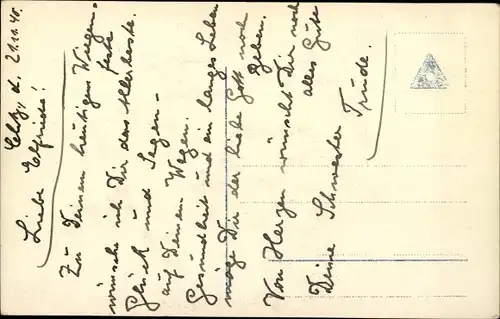 d. 21.11.40.
Liebe Elfriede!
Zu Deinem heutigen Wiegen-
feste
wünsche ich Dir das Allerbeste.
Glück und Segen -
auf Deinen Wegen.
Gesundheit und ein langes Leben
möge Dir der liebe Gott noch
geben.
Von Herzen wünscht Dir noch
alles Gute
Deine Schwester Trude.